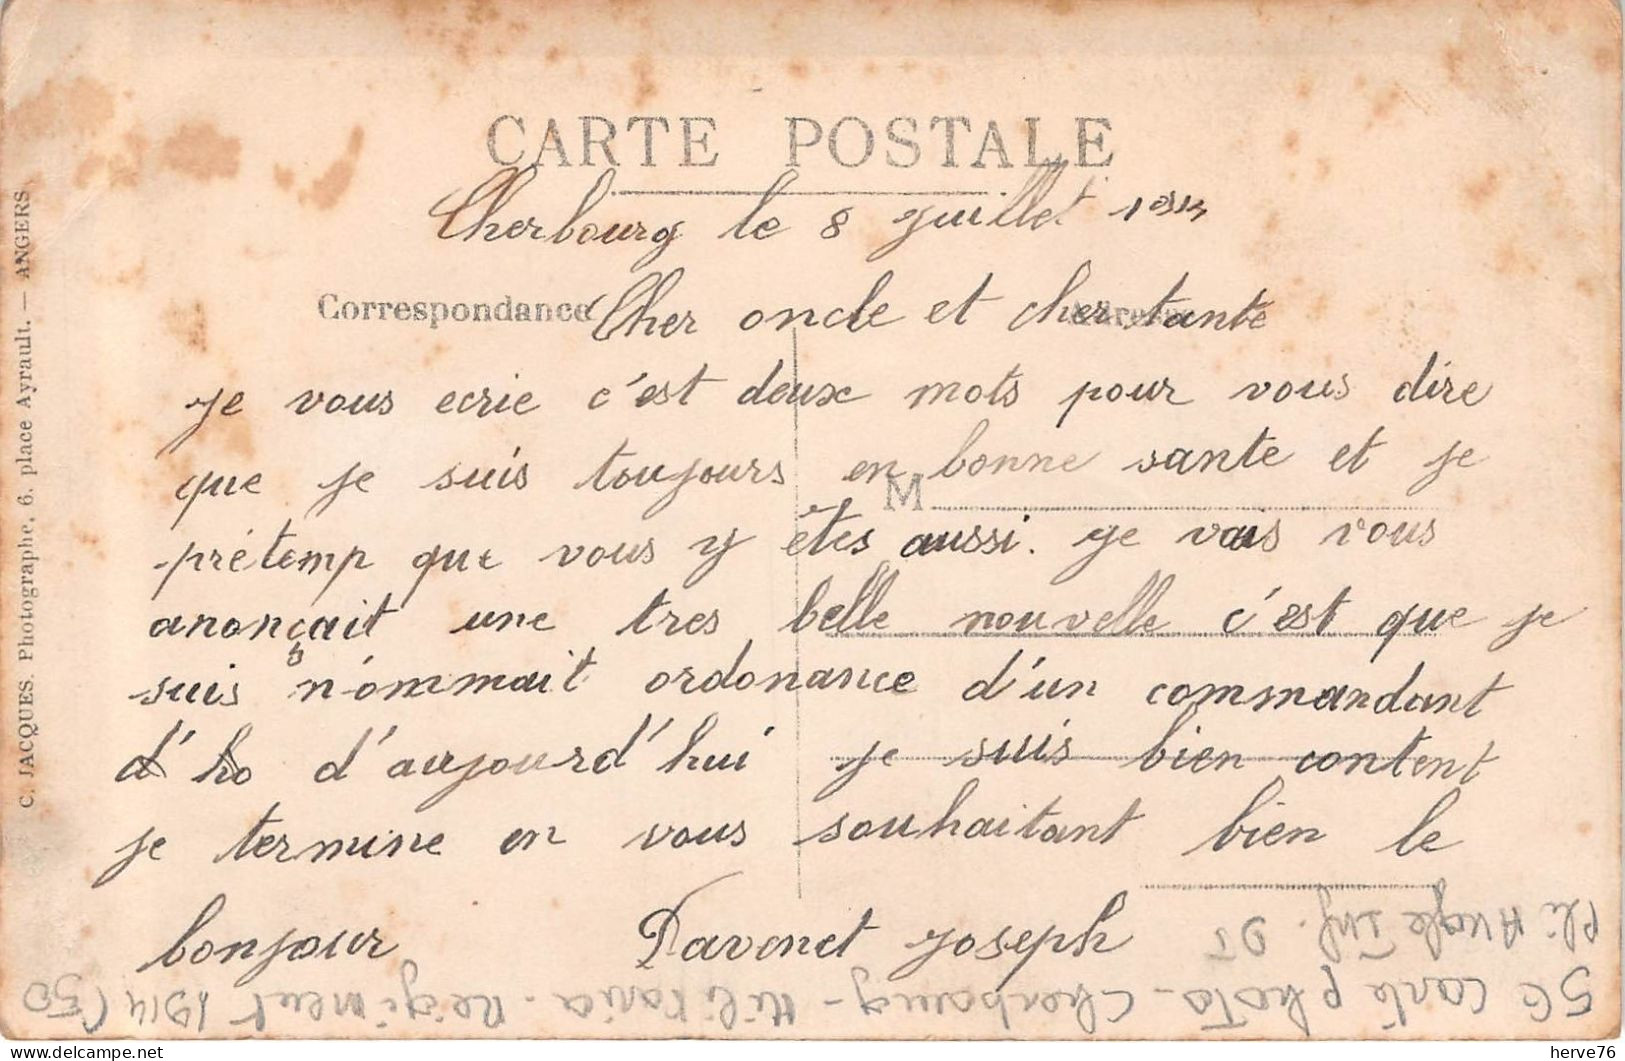 CARTE POSTALE
Cherbourg le 8 juillet
Correspondance
Cher oncle et cher tante
je vous ecrie c'est deux mots pour vous dire
que je suis toujours en bonne sante et je
M
prétemp que vous y êtes aussi. je vais vous
anonçait une tres belle nouvelle c'est que je
suis nómmait ordonance d'un commandant
d' ho d'aujourd'hui je suis bien content
je termine en vous souhaitant bien le
bonjour Davenet joseph
C. JACQUES. Photographe, 6, place Ayrault. — ANGERS
Pli Angle Inf. DT
56 carte photo - Cherbourg - Militaria - Regiment 1914 (50
herve76